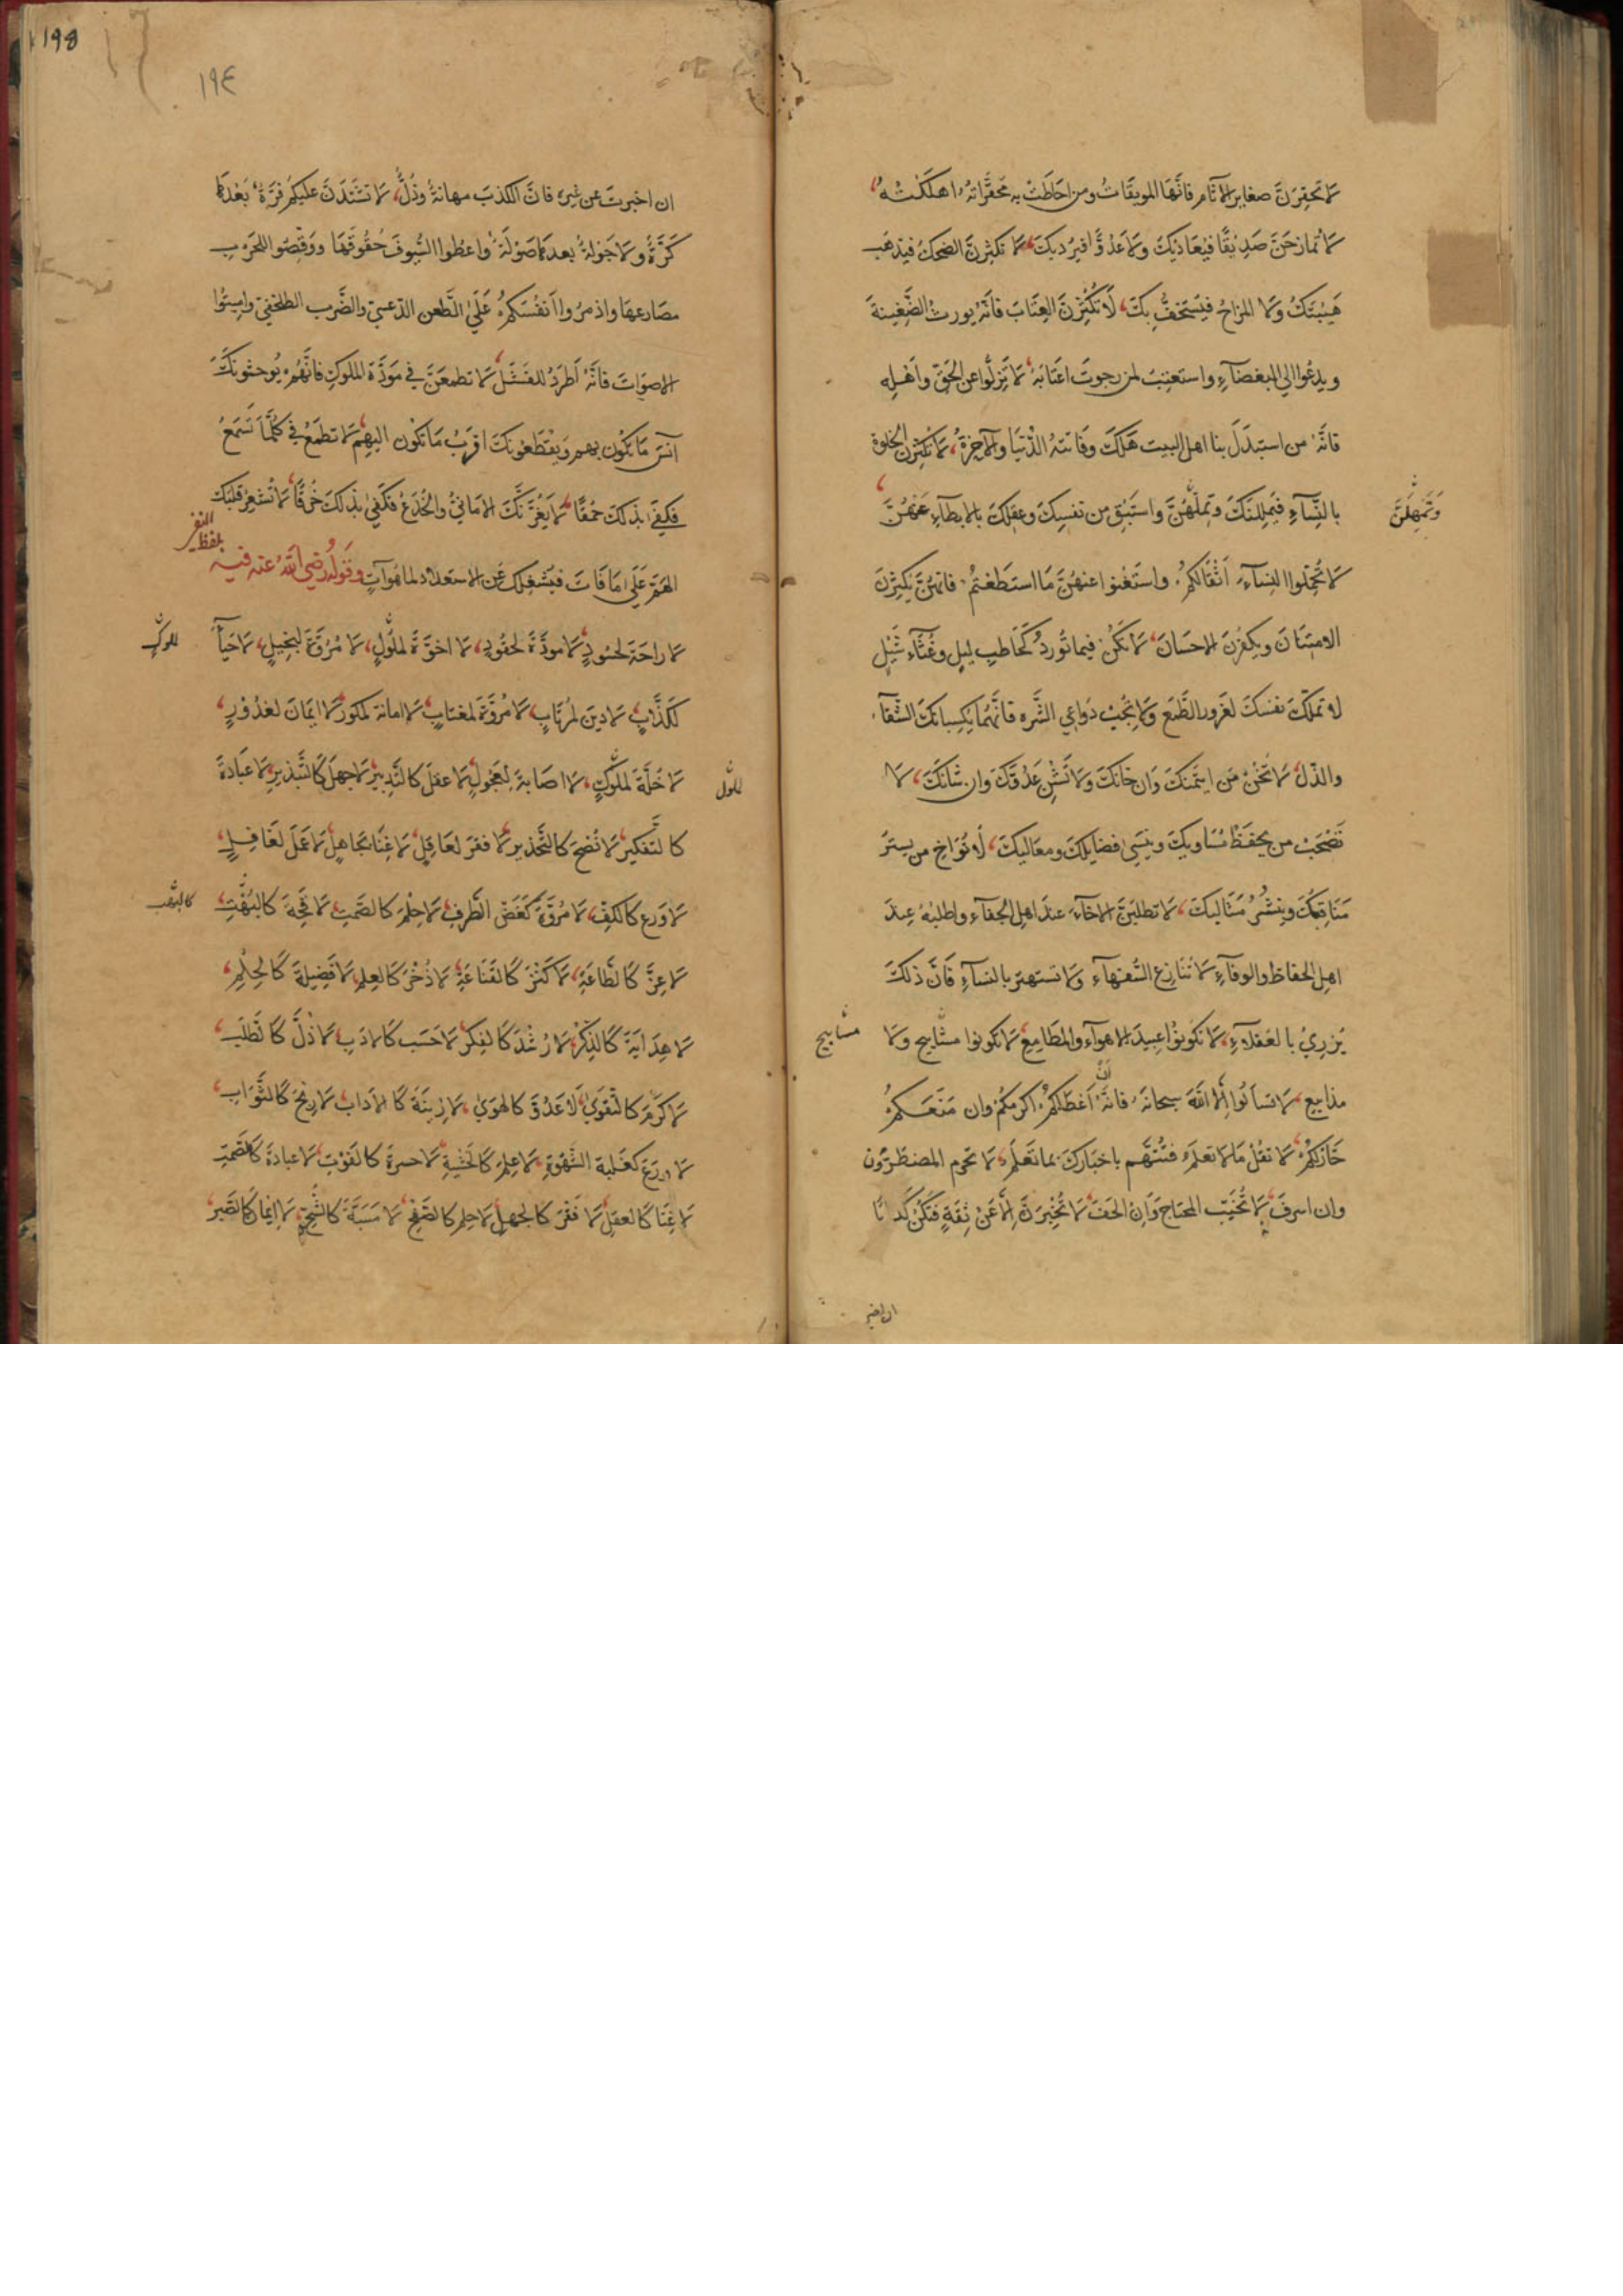 لا تحقرنّ صغاير الآثام فانّها الموبقات ومن احاطت به محقّراته اهلكته،
لا تمازحنّ صديقًا فيعاديك ولا عدوًّا فيرديك، لا تكثرنّ الضحك فيذهب
هيبتك ولا المزاح فيستخفّ بك، لا تكثرنّ العتاب فانّه يورث الضّغينة
ويدعوا الي البغضآء واستعتب لمن رجوت اعتابه، لا تزلّوا عن الحقّ واهله
فانّه من استبدل بنا اهل البيت هلك وفاتته الدّنيا والآخرة، لا تكثرن الخلوة
بالنّسآء فيمللنك وتملّهنّ واستبق من نفسك وعقلك بالابطآء عنهنّ،
وتمهلنّ
لا تحملوا النسآء اثقالكم واستغنوا عنهنّ ما استطعتم فانهنّ يكثرن
الامتنان ويكفرن الاحسان، لا تكن فيما تورد كحاطب ليل وغثّآء سيل
لا تملّك نفسك لغرور الطّمع ولا تجب دواعي الشّره فانّهما يكسبانك الشّقآء
والذّل، لا تخن من ايتمنك وان خانك ولا تشن عدوّك وان شانك، لا
تصحب من يحفظ مساويك وينسي فضايلك ومعاليك، لا تواخ من يستر
مناقبك وينشر مثاليك، لا تطلبنّ الاخآء عند اهل الجفآء واطلبه عند
اهل الحفاظ والوفآء، لا تنازع السّفهآء ولا تستهتر بالنسآء فانّ ذلك
يزري بالعقلآء، لا تكونوا عبيد الاهوآء والمطامع، لا تكونوا مساييح ولا
مسابيح
مذاييع، لا تسالوا الّا اللّه سبحانه فانّه ان اعطاكم اكرمكم وان منعكم
خازلكم، لا تقل ما لا تعلم فتتّهم باخبارك بما تعلم، لا تحرم المضطرّون
وان اسرف، لا تخيّب المحتاج وان الحف، لا تخبرنّ الّا عن ثقة فتكن كذّابًا
ان اخبر
١٩٤
ان اخبرت عن غيره فانّ الكذب مهانة وذلّ، لا تشتدّنّ عليكم فرّة بعدها
كرّة ولا جولة بعدها صولة واعطوا السّيوف حقوقها ووقّصوا للحرب
مصارعها واذمروا انفسكم علي الطّعن الدّعسيّ والضّرب الطلخفي واميتوا
الاصوات فانّه اطرد للفشل، لا تطمعنّ في مودّة الملوك فانّهم يوحشونك
آنس ما تكون بهم ويقطعونك اقرب ما تكون اليهم، لا تطمع في كلّما تسمع
فكفي بذلك حمقًا، لا يغرّنّك الاماني والخدع فكفي بذلك خرقًا، لا تشعر قلبك
الهمّ علي ما فات فيشغلك عن الاستعداد لما هو آت وقوله رضي الله عنه فيه
بلفظ النفي
لا راحة لحسود، لا مودّة لحقود، لا اخوّة لملول، لا مروّة لبخيل، لا حيآء
للملوك
لكذّاب، لا دين لمرتاب، لا مروّة لمغتاب، لا امانة لمكور، لا ايمان لغدور،
لا خلّة لملوك، لا اصابة لعجول، لا عقل كالتّدبير، لا جهل كالتّبذير، لا عبادة
لملول
كالتّفكير، لا نصح كالتّحذير، لا فقر لعاقل، لا غنا لجاهل، لا عمل لغافل،
لا ورع كالكفّ، لا مروّة كغضّ الطّرف، لا حلم كالصّمت، لا قحة كالبهت،
لا عزّ كالطّاعة، لا كنز كالقناعة، لا ذخر كالعلم، لا فضيلة كالحلم،
لا هداية كالذّكر، لا رشد كالفكر، لا حسب كالادب، لا ذلّ كالطّلب،
لا كرم كالتّقوي، لا عدوّ كالهوي، لا زينة كالآداب، لا ربح كالثّواب،
لا ورع كغلبة الشّهوة، لا علم كالخشية، لا حسرة كالفوت، لا عبادة كالصّمت
لا غنا كالعقل، لا فقر كالجهل، لا حلم كالصّفح، لا مسبّة كالشّحّ، لا ايمان كالصّبر،